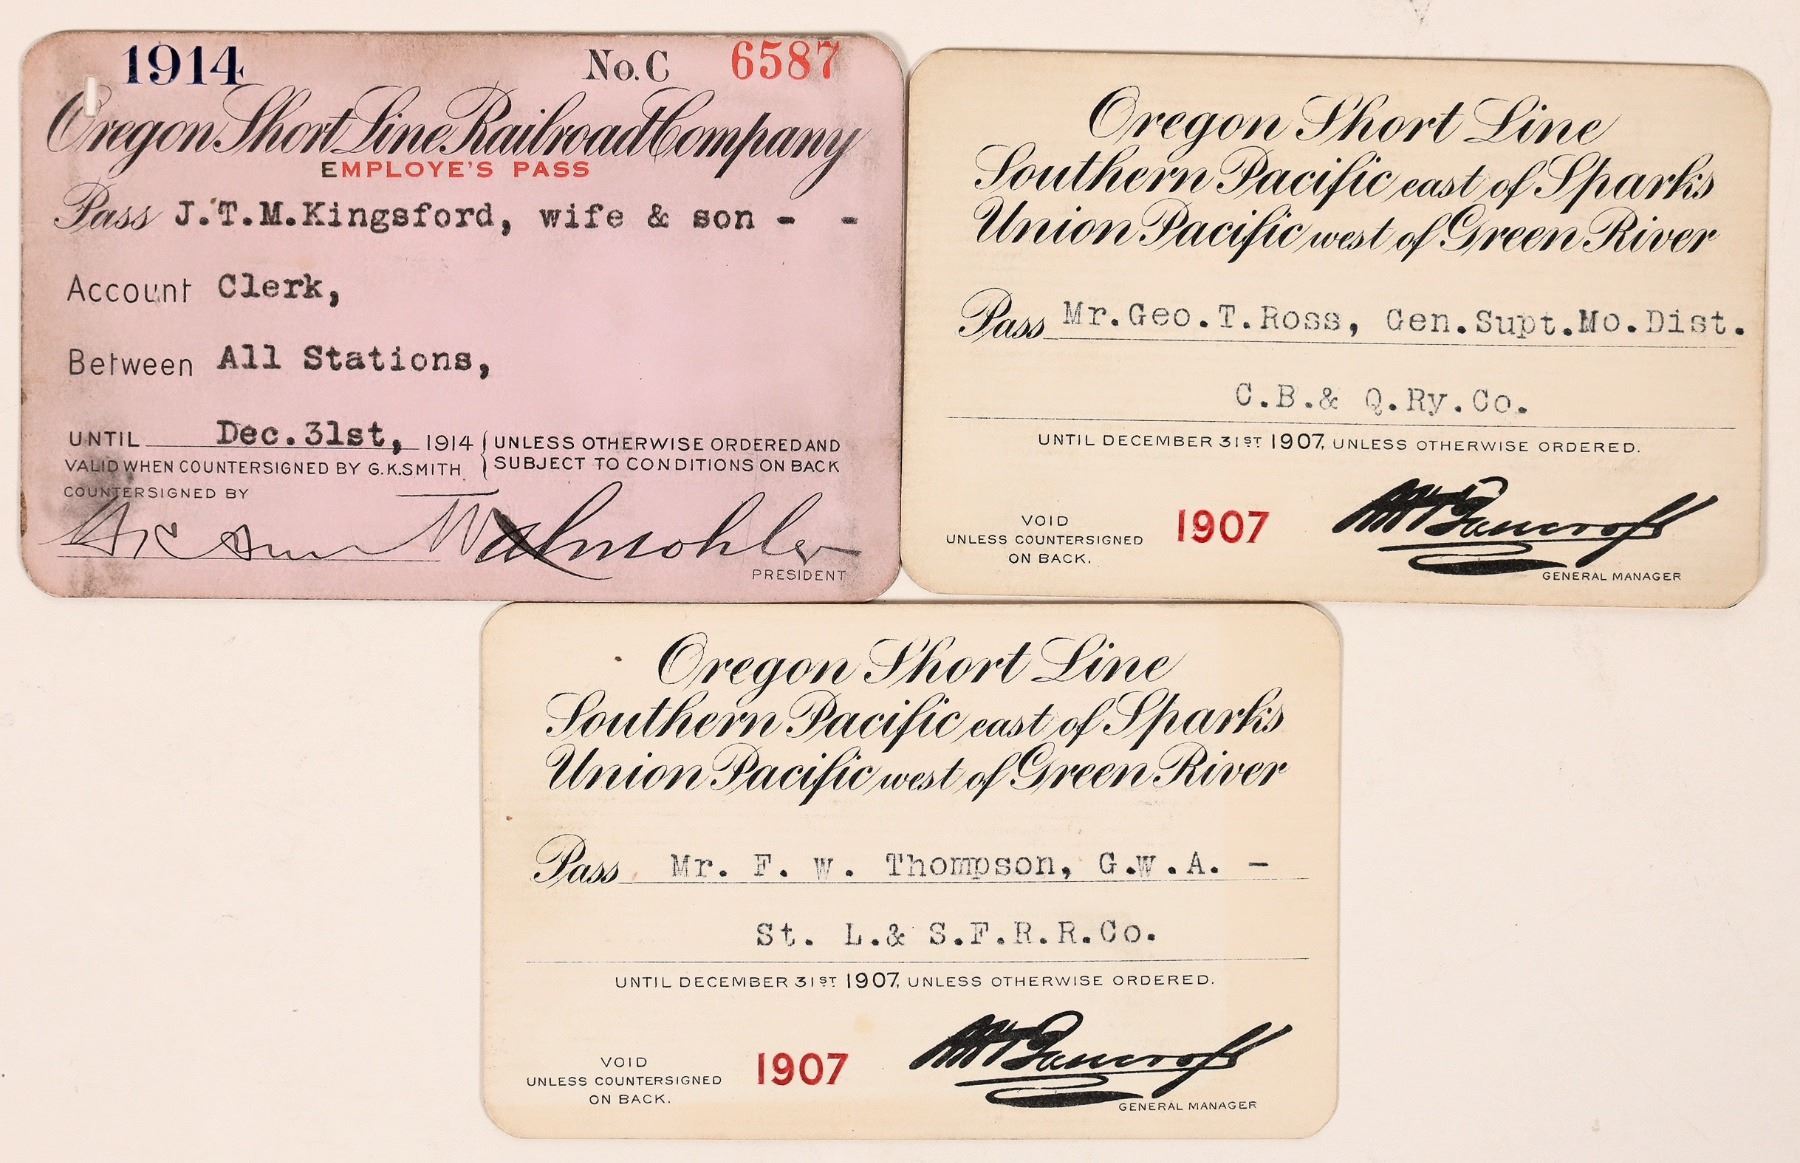 1914 No. C 6587
Oregon Short Line Railroad Company
EMPLOYE'S PASS
Pass J.T.M.Kingsford, wife & son - -
Account Clerk,
Between All Stations,
UNTIL Dec.31st, 1914 { UNLESS OTHERWISE ORDERED AND
VALID WHEN COUNTERSIGNED BY G.K.SMITH. SUBJECT TO CONDITIONS ON BACK
COUNTERSIGNED BY
PRESIDENT
Oregon Short Line
Southern Pacific east of Sparks
Union Pacific west of Green River
Pass Mr.Geo.T.Ross, Gen.Supt.Mo.Dist.
C.B.& Q.Ry.Co.
UNTIL DECEMBER 31ST 1907, UNLESS OTHERWISE ORDERED.
VOID
UNLESS COUNTERSIGNED
ON BACK.
1907
W H Bancroft
GENERAL MANAGER
Oregon Short Line
Southern Pacific east of Sparks
Union Pacific west of Green River
Pass Mr. F. W. Thompson, G.W.A. -
St. L.& S.F.R.R.Co.
UNTIL DECEMBER 31ST 1907, UNLESS OTHERWISE ORDERED.
VOID
UNLESS COUNTERSIGNED
ON BACK.
1907
W H Bancroft
GENERAL MANAGER